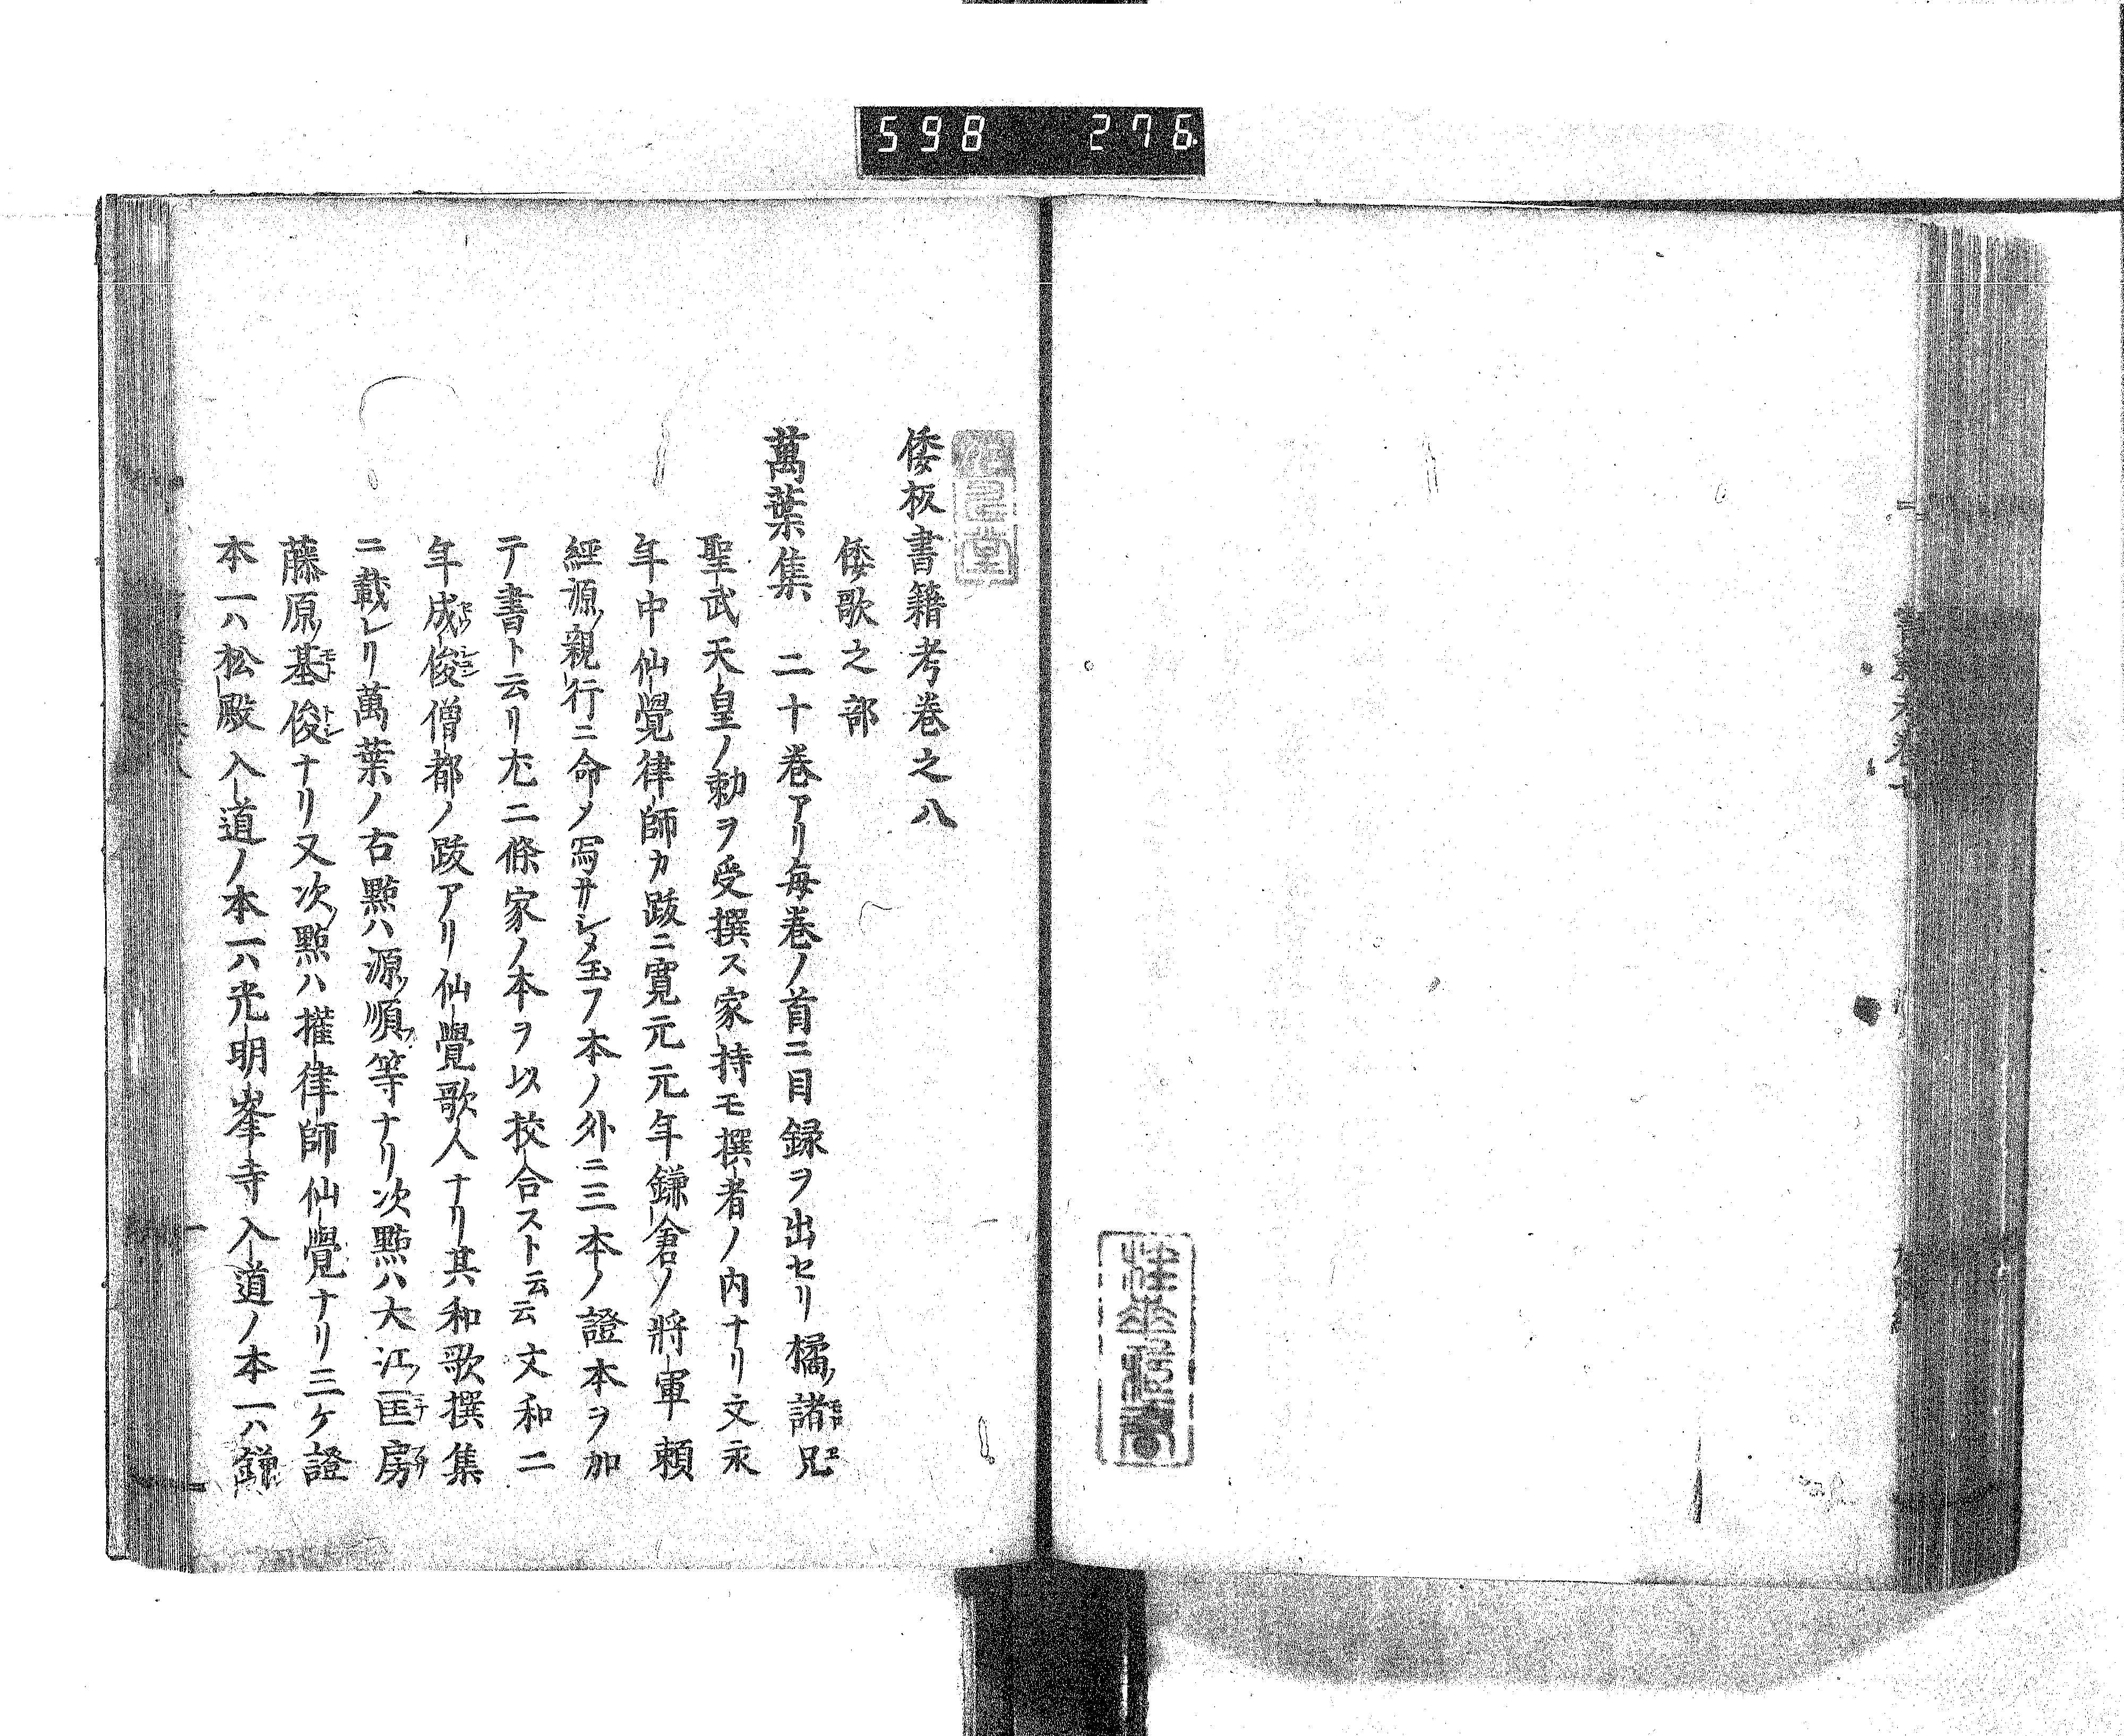 598 276
倭板書籍考巻之八
倭歌之部
萬葉集 二十巻アリ毎巻ノ首ニ目録ヲ出セリ橘ノ諸兄
聖武天皇ノ勅ヲ受撰ス家持モ撰者ノ内ナリ文永
年中仙覺律師カ跋ニ寛元元年鎌倉ノ將軍頼
經源ノ親行ニ命メ写サシメ玉フ本ノ外ニ三本ノ證本ヲ加
テ書ト云リ尤二條家ノ本ヲ以校合スト云云文和二
年成俊僧都ノ跋アリ仙覺歌人ナリ其和歌撰集
ニ載レリ萬葉ノ古點ハ源ノ順等ナリ次點ハ大江ノ匡房
藤原ノ基俊ナリ又次ノ點ハ權律師仙覺ナリ三ケ證
本一ハ松殿入道ノ本一ハ光明峯寺入道ノ本一ハ鎌